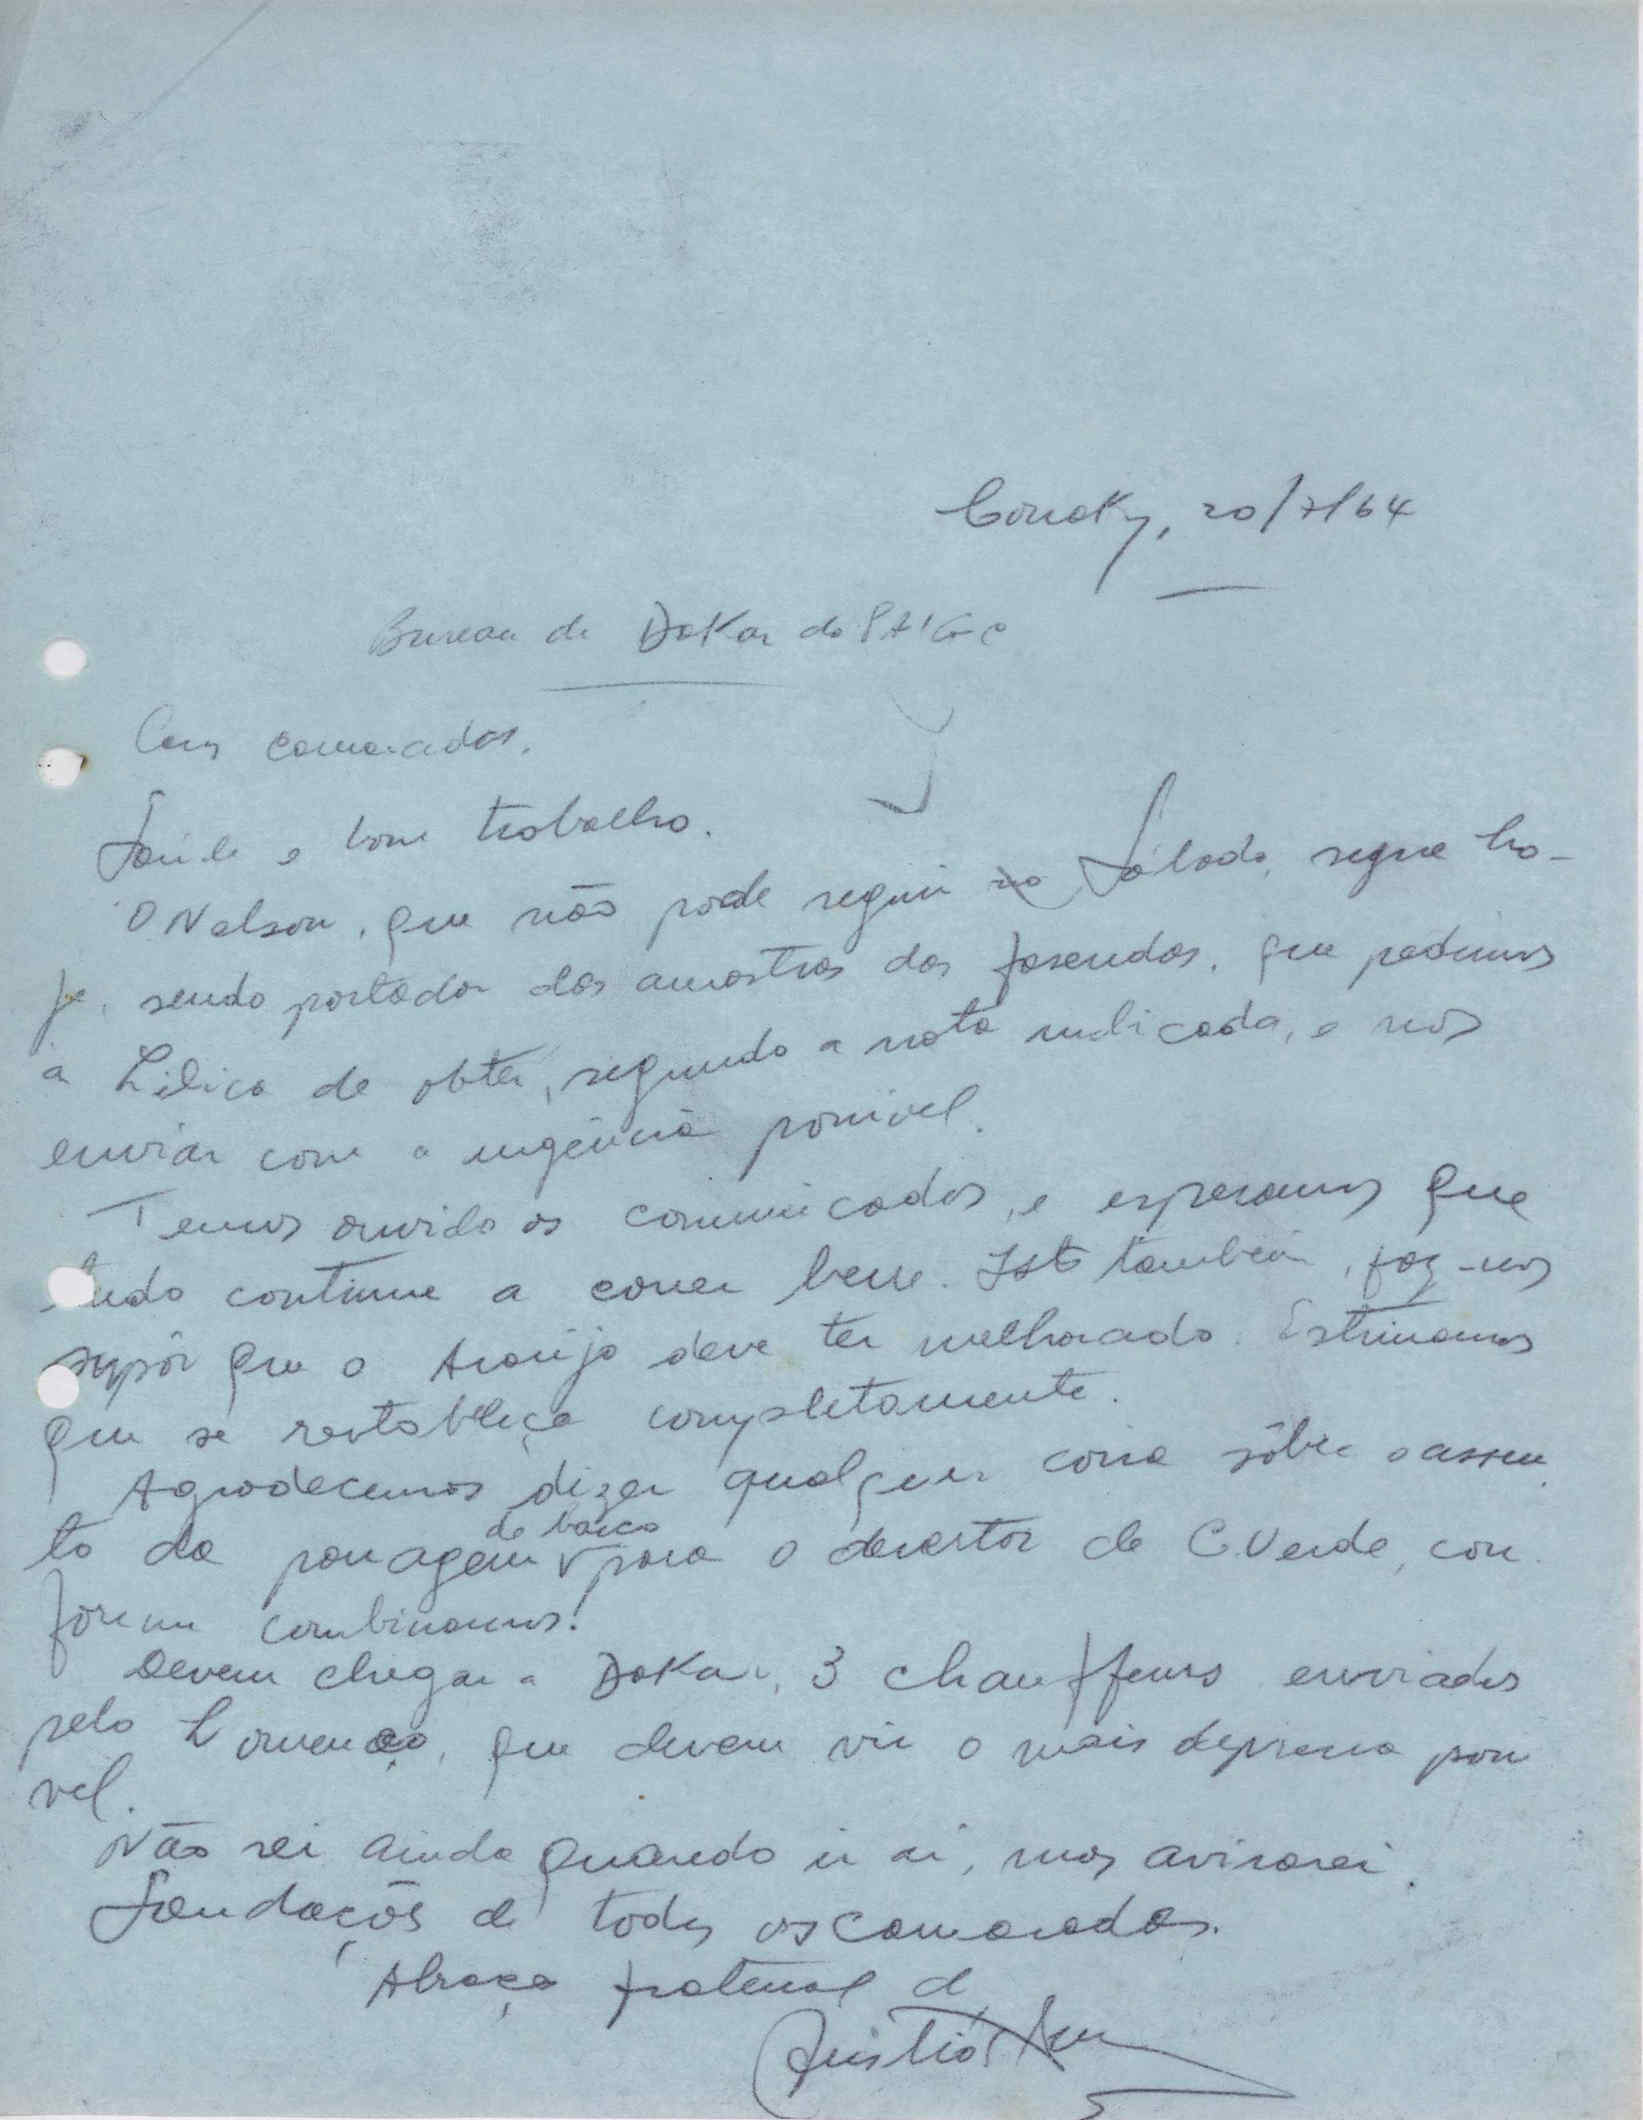 Conakry, 20/7/64
Bureau de Dakar do PAIGC
Caros camaradas,
Saúde e bom trabalho.
O Nelson, que não pode seguir no Sábado, segue ho-
je, sendo portador das amostras das fasendas, que pedimos
à Lilica de obter, segundo a nota indicada, e nos
enviar com a urgência possivel.
Temos ouvido os comunicados, e esperamos que
tudo continue a correr bem. Isto também, faz-nos
supôr que o Araújo deve ter melhorado. Estimamos
que se restabeleça completamente.
Agradecemos dizer qualquer coisa sôbre o assun
de barco
to da passagem para o desertor de C. Verde, con
forme combinamos!
Devem chegar a Dakar, 3 chauffeurs enviados
pelo Lourenço, que devem vir o mais depressa possi
vel.
Não sei ainda quando ir aí, mas avisarei.
Saudaçõs de todos os camaradas.
Abraço fraternal de